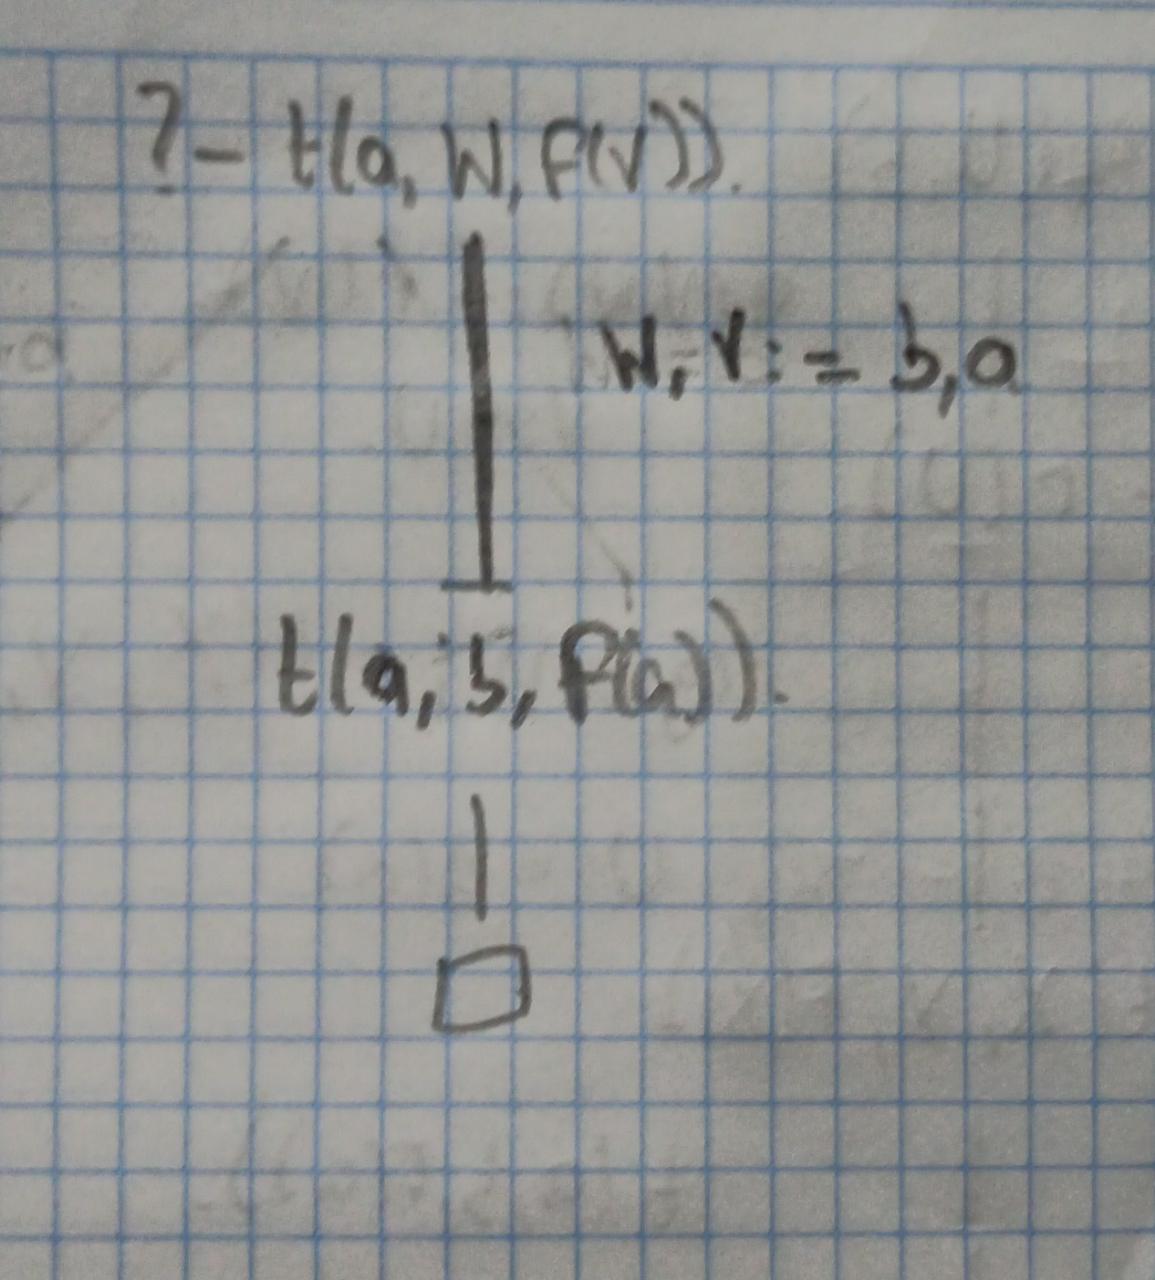 ?- t(a, W, f(V)).
W, V := b, a
t(a, b, f(a)).